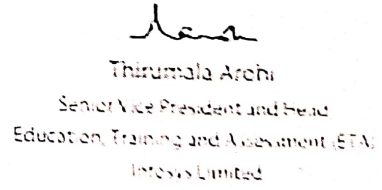 Thirumala Arohi
Senior Vice President and Head
Education, Training and Assessment (ETA)
Infosys Limited